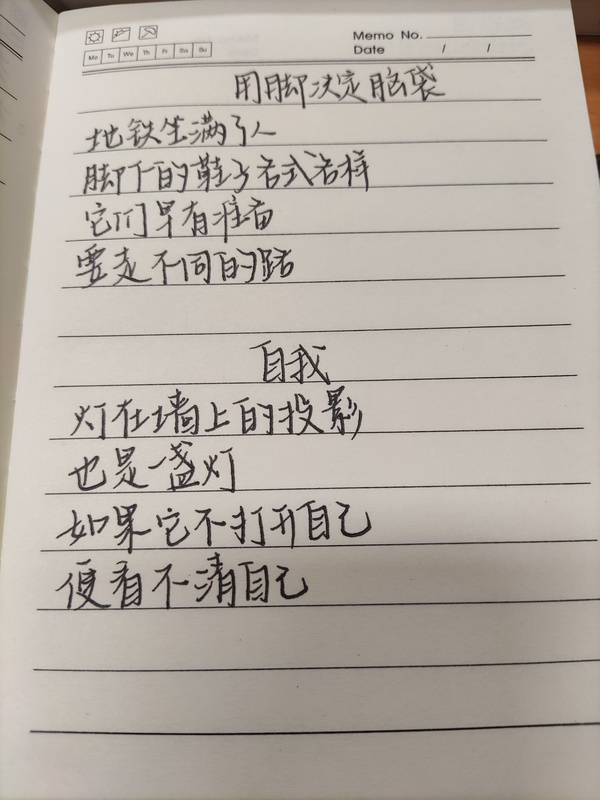 Memo No.
Mo Tu We Th Fr Sa Su
Date / /
用脚决定脑袋
地铁坐满了人
脚下的鞋子各式各样
它们早有准备
要走不同的路
自我
灯在墙上的投影
也是一盏灯
如果它不打开自己
便看不清自己